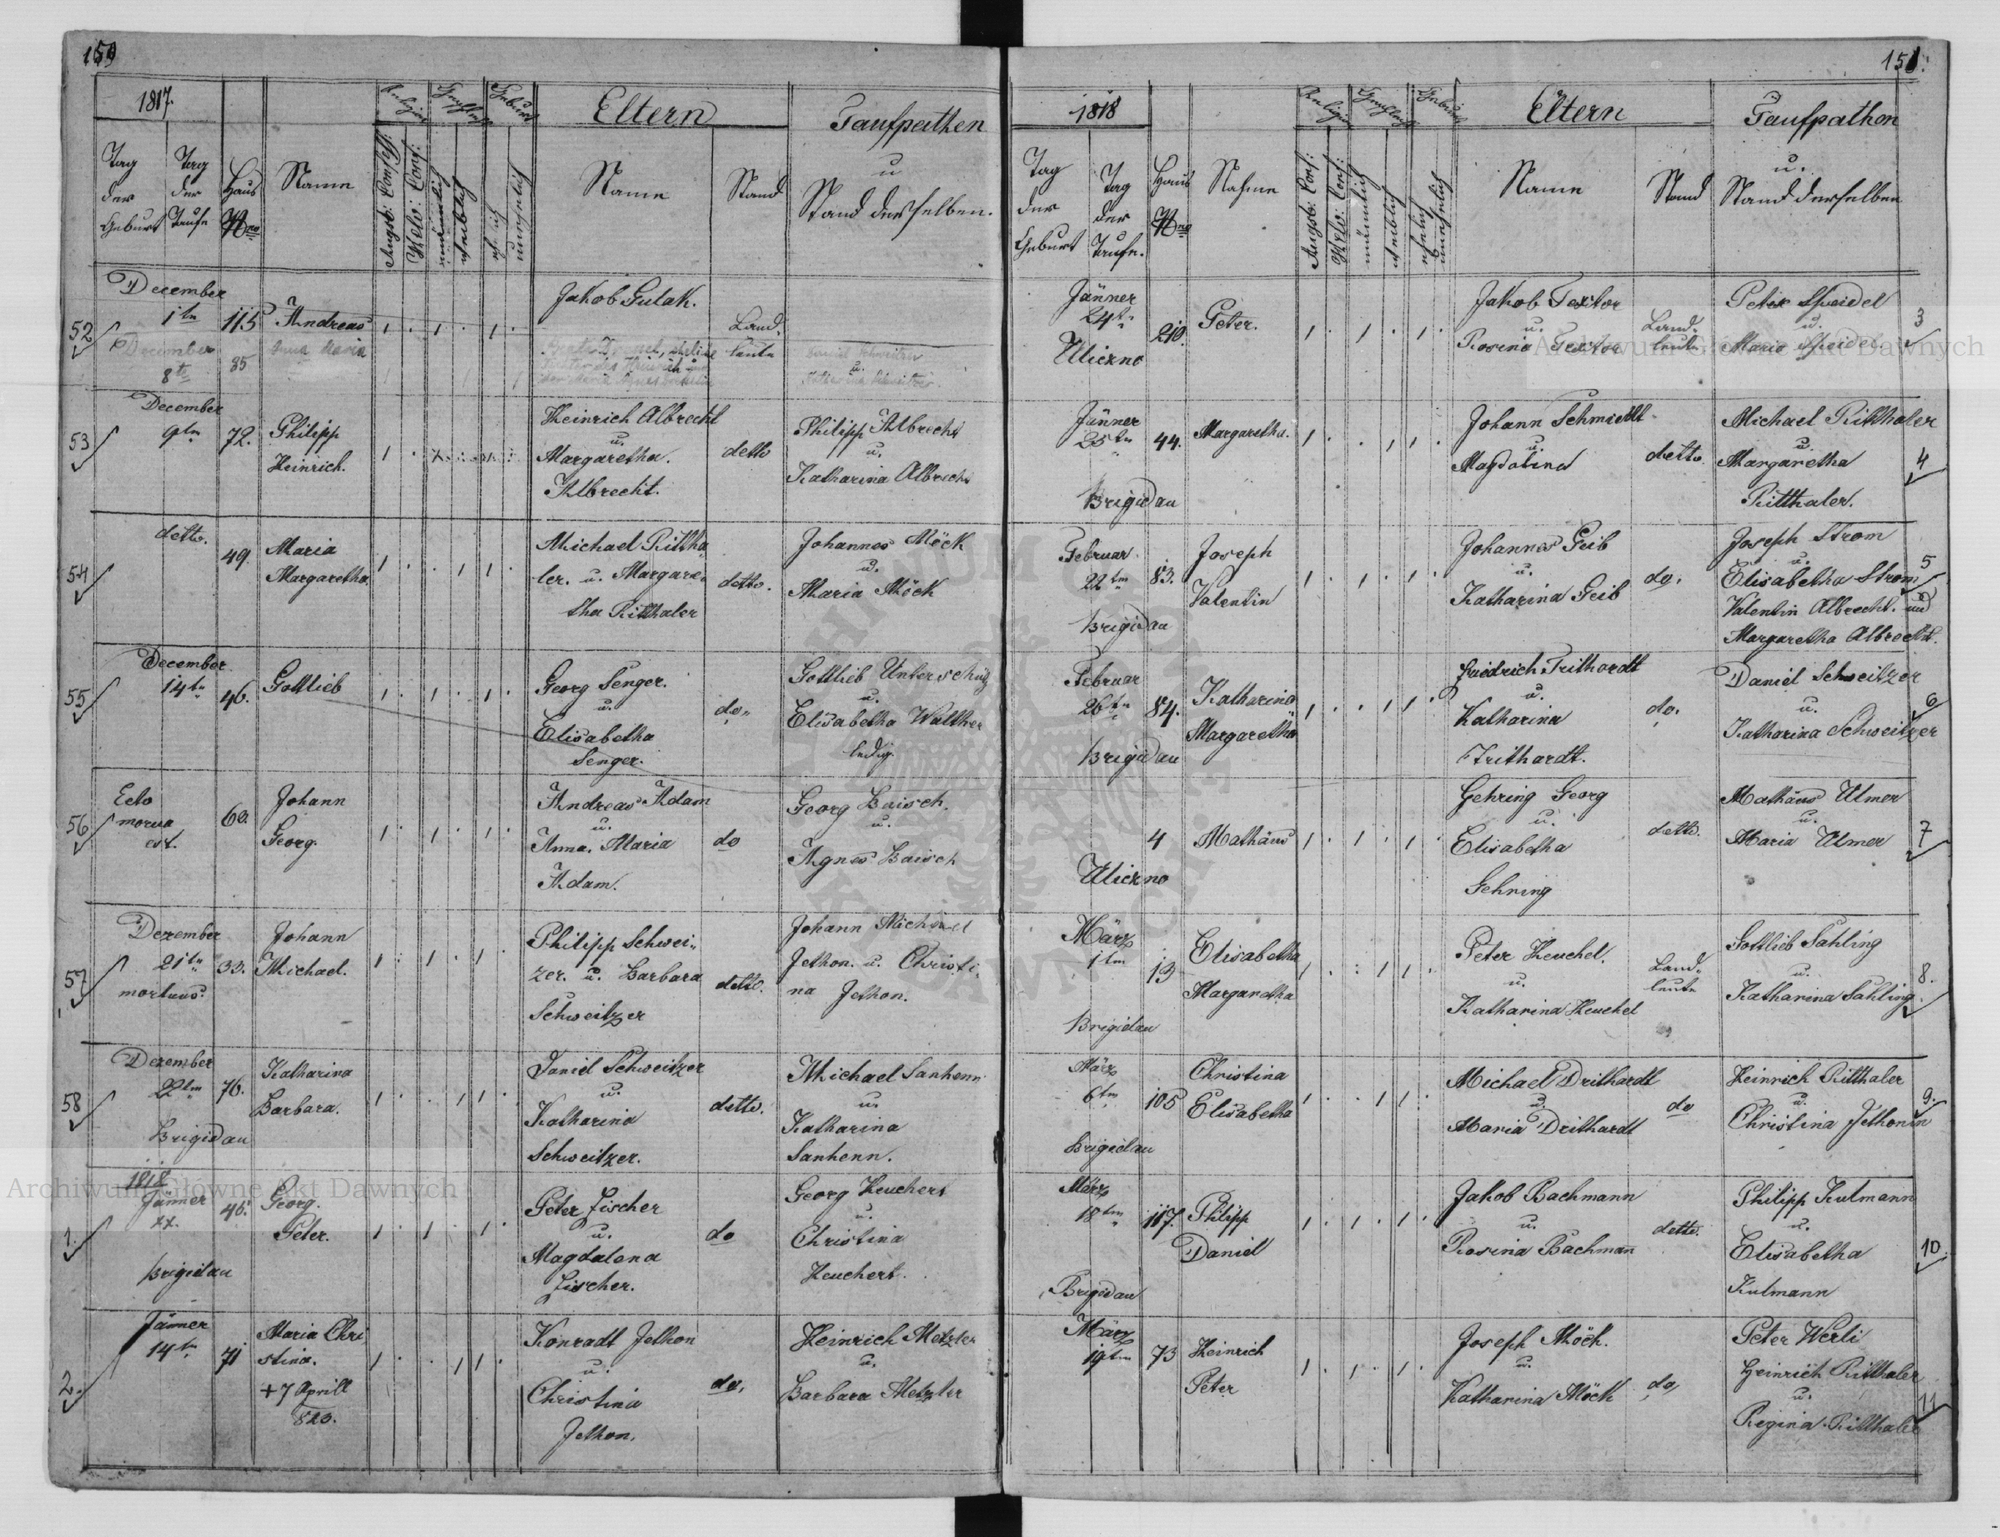 150
1817.
Eltern
Taufpathen
u
Stand derselben.
Tag
der
Geburt
Tag
der
Taufe
Haus
Nro
Name
Augsb: Conf:
Helv: Conf:
männlich
weiblich
ehelich
unehelich
Name
Stand
52
December
1ten
115
Andreas
1 . 1 . 1 .
Jakob Gulak.
Land
leute
December
8ten
85
Anna Maria
53
December
9ten
72.
Philipp
Heinrich.
Heinrich Albrecht
u.
Margaretha.
Albrecht.
detto
Philipp Albrecht
u.
Katharina Albrecht
54
detto.
49.
Maria
Margaretha.
1 . . 1 1 .
Michael Rittha
ler. u. Margare
tha Ritthaler
detto.
Johannes Möck
u.
Maria Möck
55
December
14ten
46.
Gottlieb
1 . 1 . 1 .
Georg Senger.
u.
Elisabetha
Senger.
do.
Gottlieb Unterschütz
u.
Elisabetha Walther
ledig.
56
60.
Johann
Georg.
1 . 1 . 1 .
Andreas Adam
u.
Anna Maria
Adam.
do
Georg Baisch.
u.
Agnes Baisch
57
Dezember
21ten
mortuus.
33.
Johann
Michael.
1 . 1 . 1 .
Philipp Schwei-
zer. u. Barbara
Schweitzer
detto.
Johann Michael
Jethon. u. Christi
na Jethon.
58
Dezember
22ten
Brigidau
76.
Katharina
Barbara.
1 . . 1 1 .
Daniel Schweitzer
u.
Katharina
Schweitzer.
detto.
Michael Sanhenn
u.
Katharina
Sanhenn.
1.
1818
Jänner
Brigidau
46.
Georg.
Peter.
1 . 1 . 1 .
Peter Fischer
u.
Magdalena
Fischer.
do
Georg Heuchert
u.
Christina
Heuchert.
2.
Jänner
14ten
71
Maria Chri
stina.
+ 7 Aprill
820.
1 . . 1 1 .
Konradt Jethon
u.
Christina
Jethon.
do.
Heinrich Metzler
u.
Barbara Metzler
151.
1818
Eltern
Taufpathen
u.
Stand derselben
Tag
der
Geburt
Tag
der
Taufe.
Haus
Nro
Nahme
Augsb: Conf:
Helv: Conf:
männlich
weiblich
ehelich
unehelich
Name
Stand
Jänner
24ten
Uliczno
210.
Peter.
1 . 1 . 1 .
Jakob Textor
u.
Rosina Textor
Land-
leute
Peter Speidel
u.
Maria Speidel.
3
Jänner
25ten
Brigidau
44.
Margaretha.
1 . . 1 1 .
Johann Schmiedt
u.
Magdalina
detto.
Michael Ritthaler
u.
Margaretha
Ritthaler.
4
Februar.
22ten
Brigidau
83.
Joseph
Valentin
1 . 1 . 1 .
Johannes Geib
u.
Katharina Geib
do.
Joseph Strom
u.
Elisabetha Strom
Valentin Albrecht. und
Margaretha Albrecht.
5
Februar
26ten
Brigidau
84.
Katharina
Margaretha
1 . . 1 1 .
Friedrich Trithardt
u.
Katharina
Trithardt.
do.
Daniel Schweitzer
u.
Katharina Schweitzer
6
Uliczno
4
Mathäus
1 . 1 . 1 .
Gehring Georg
u.
Elisabetha
Gehring
detto.
Mathäus Ulmer
u.
Maria Ulmer
7
März
1ten
Brigidau
13
Elisabetha
Margaretha
1 . . 1 1 .
Peter Heuchel.
u.
Katharina Heuchel
Land-
leute
Gottlieb Sahling
u.
Katharina Sahling.
8.
März
6ten
Brigidau
105
Christina
Elisabetha
1 . . 1 1 .
Michael Drithardt
u.
Maria Drithardt
do
Heinrich Ritthaler
u.
Christina Jethonin
9.
März
18ten
Brigidau
117.
Philipp
Daniel
1 . 1 . 1 .
Jakob Bachmann
u.
Rosina Bachman
detto.
Philipp Kulmann
u.
Elisabetha
Kulmann
10.
März
19ten
73
Heinrich
Peter
1 . 1 . 1 .
Joseph Möck.
u.
Katharina Möck
do,
Peter Werli
Heinrich Ritthaler
u.
Regina Ritthaler
11
Archiwum Główne Akt Dawnych
Archiwum Główne Akt Dawnych